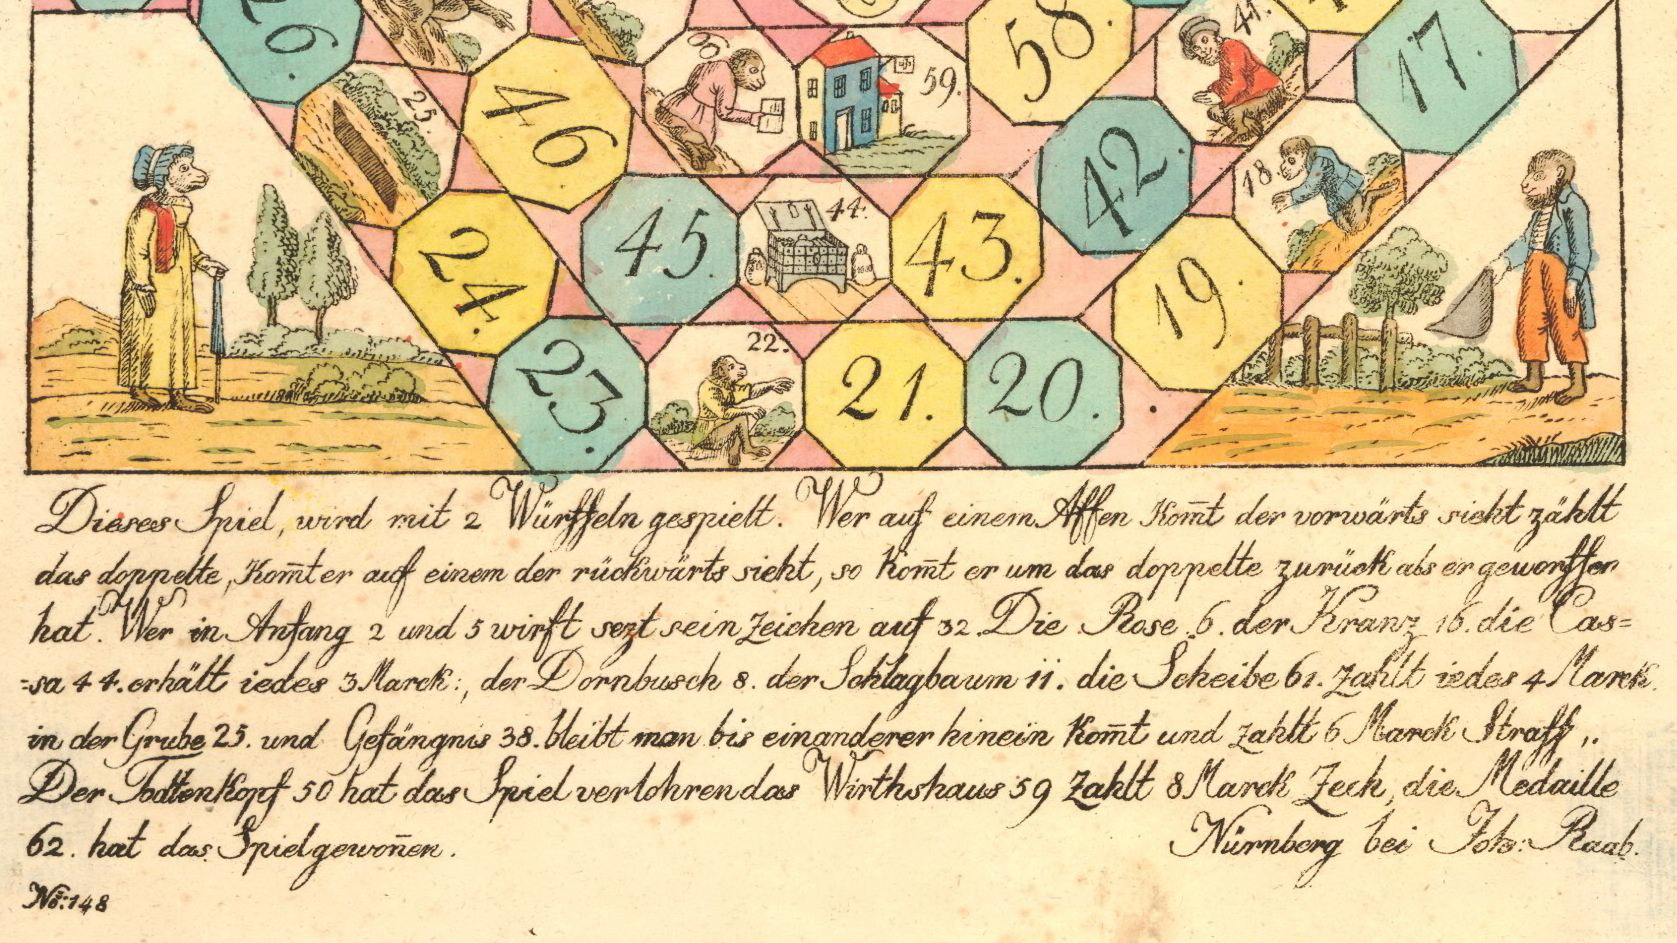 26.
60
59.
58.
41.
17.
25.
46
42
18.
24.
45.
44.
43.
19.
23.
22.
21.
20.
Dieses Spiel, wird mit 2 Würffeln gespielt. Wer auf einem Affen Kom̄t der vorwärts sieht zählt
das doppelte, Kom̄t er auf einem der rückwärts sieht, so kom̄t er um das doppelte zurück als er geworffen
hat. Wer in Anfang 2 und 5 wirft sezt sein Zeichen auf 32. Die Rose 6. der Kranz 16. die Cas=
=sa 44. erhält iedes 3 Marck:, der Dornbusch 8. der Schlagbaum 11. die Scheibe 61. zahlt iedes 4 Marck.
in der Grube 25. und Gefängnis 38. bleibt man bis ein anderer hinein kom̄t und zahlt 6 Marck Straff,.
Der Todtenkopf 50 hat das Spiel verlohren das Wirthshaus 59 zahlt 8 Marck Zech, die Medaille
62. hat das Spiel gewon̄en.
Nürnberg bei Joh: Raab.
No: 148